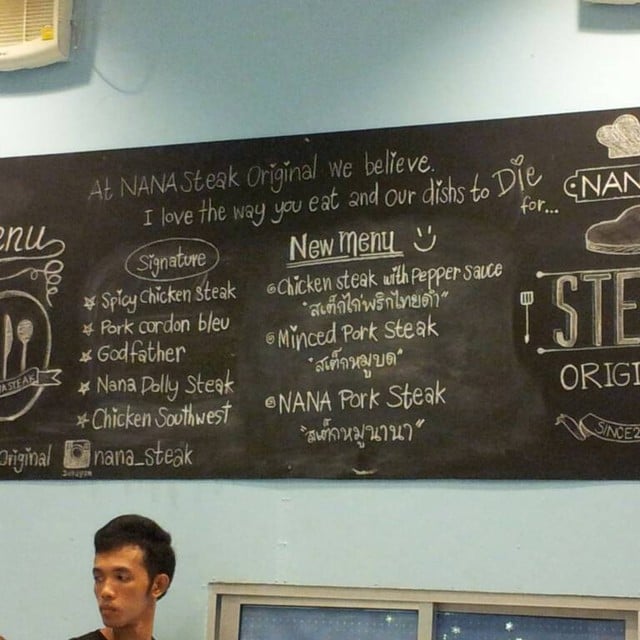 At NANA Steak Original we believe.
I love the way you eat and our dishs to Die
for...
enu
Signature
Spicy Chicken Steak
Pork cordon bleu
Godfather
Nana Dolly Steak
Chicken Southwest
Original
nana_steak
New menu
Chicken steak with Pepper sauce
"สเต็กไก่พริกไทยดำ"
Minced Pork Steak
"สเต็กหมูบด"
NANA Pork Steak
"สเต็กหมูนานา"
NAN
STE
ORIGI
SINCE2